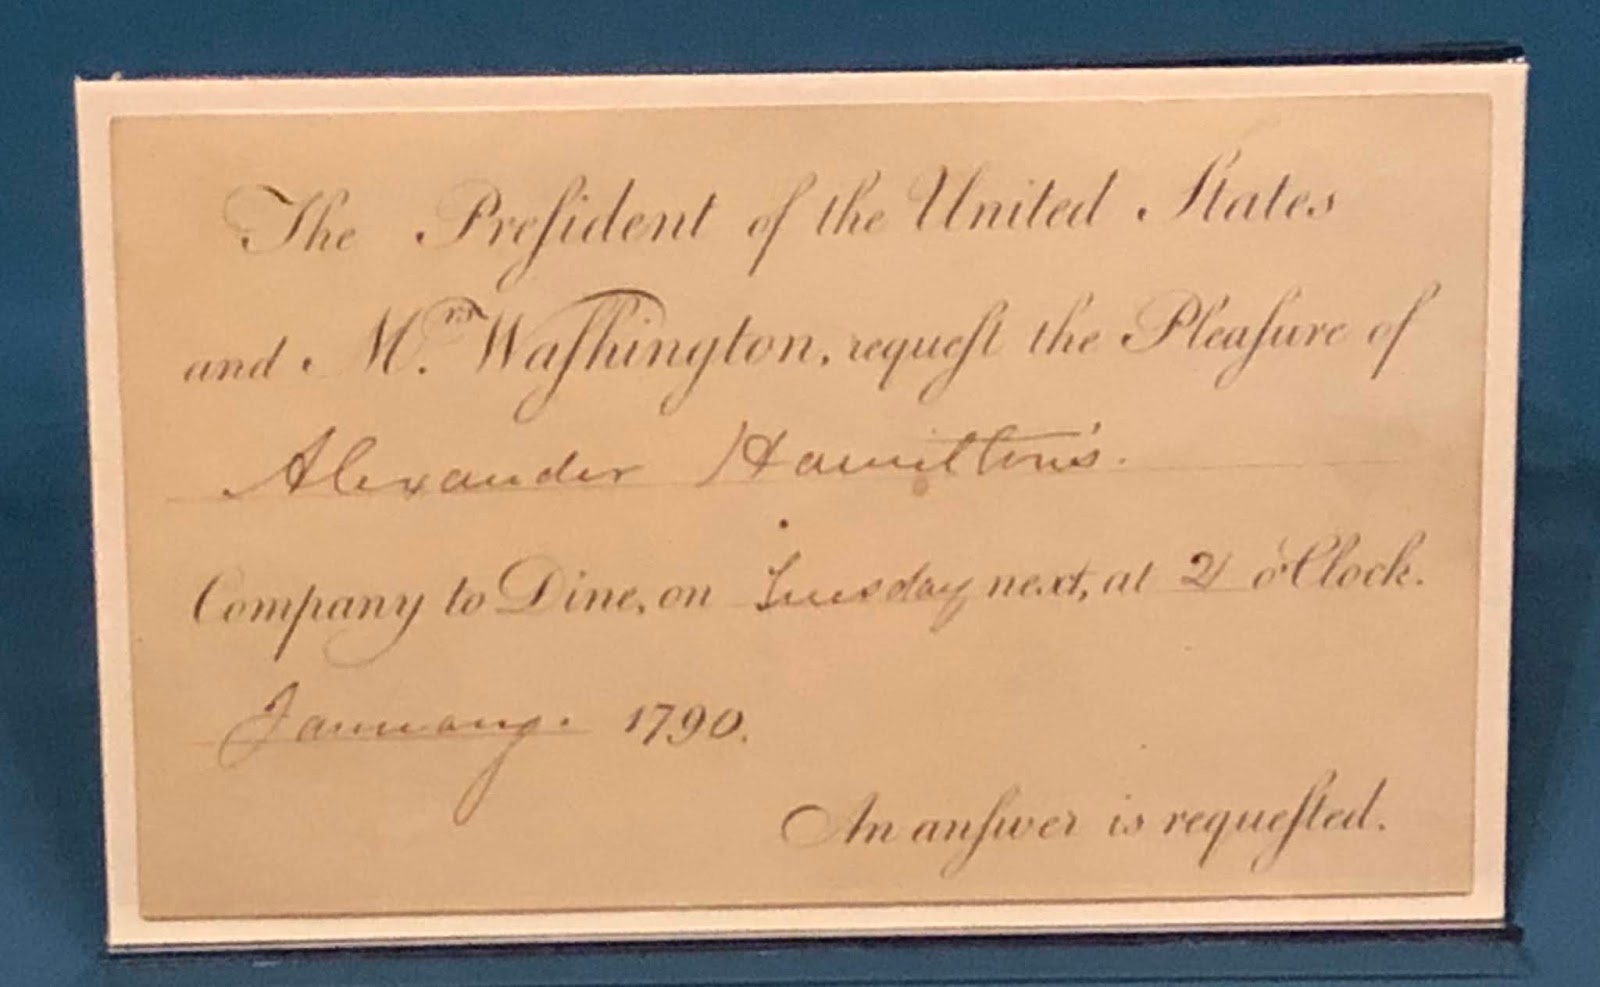 The Preſident of the United States
and Mrs. Waſhington, requeſt the Pleaſure of
Alexander Hamilton's.
Company to Dine, on Tuesday next, at 2 o'Clock.
January. 1790.
An anſwer is requeſted.